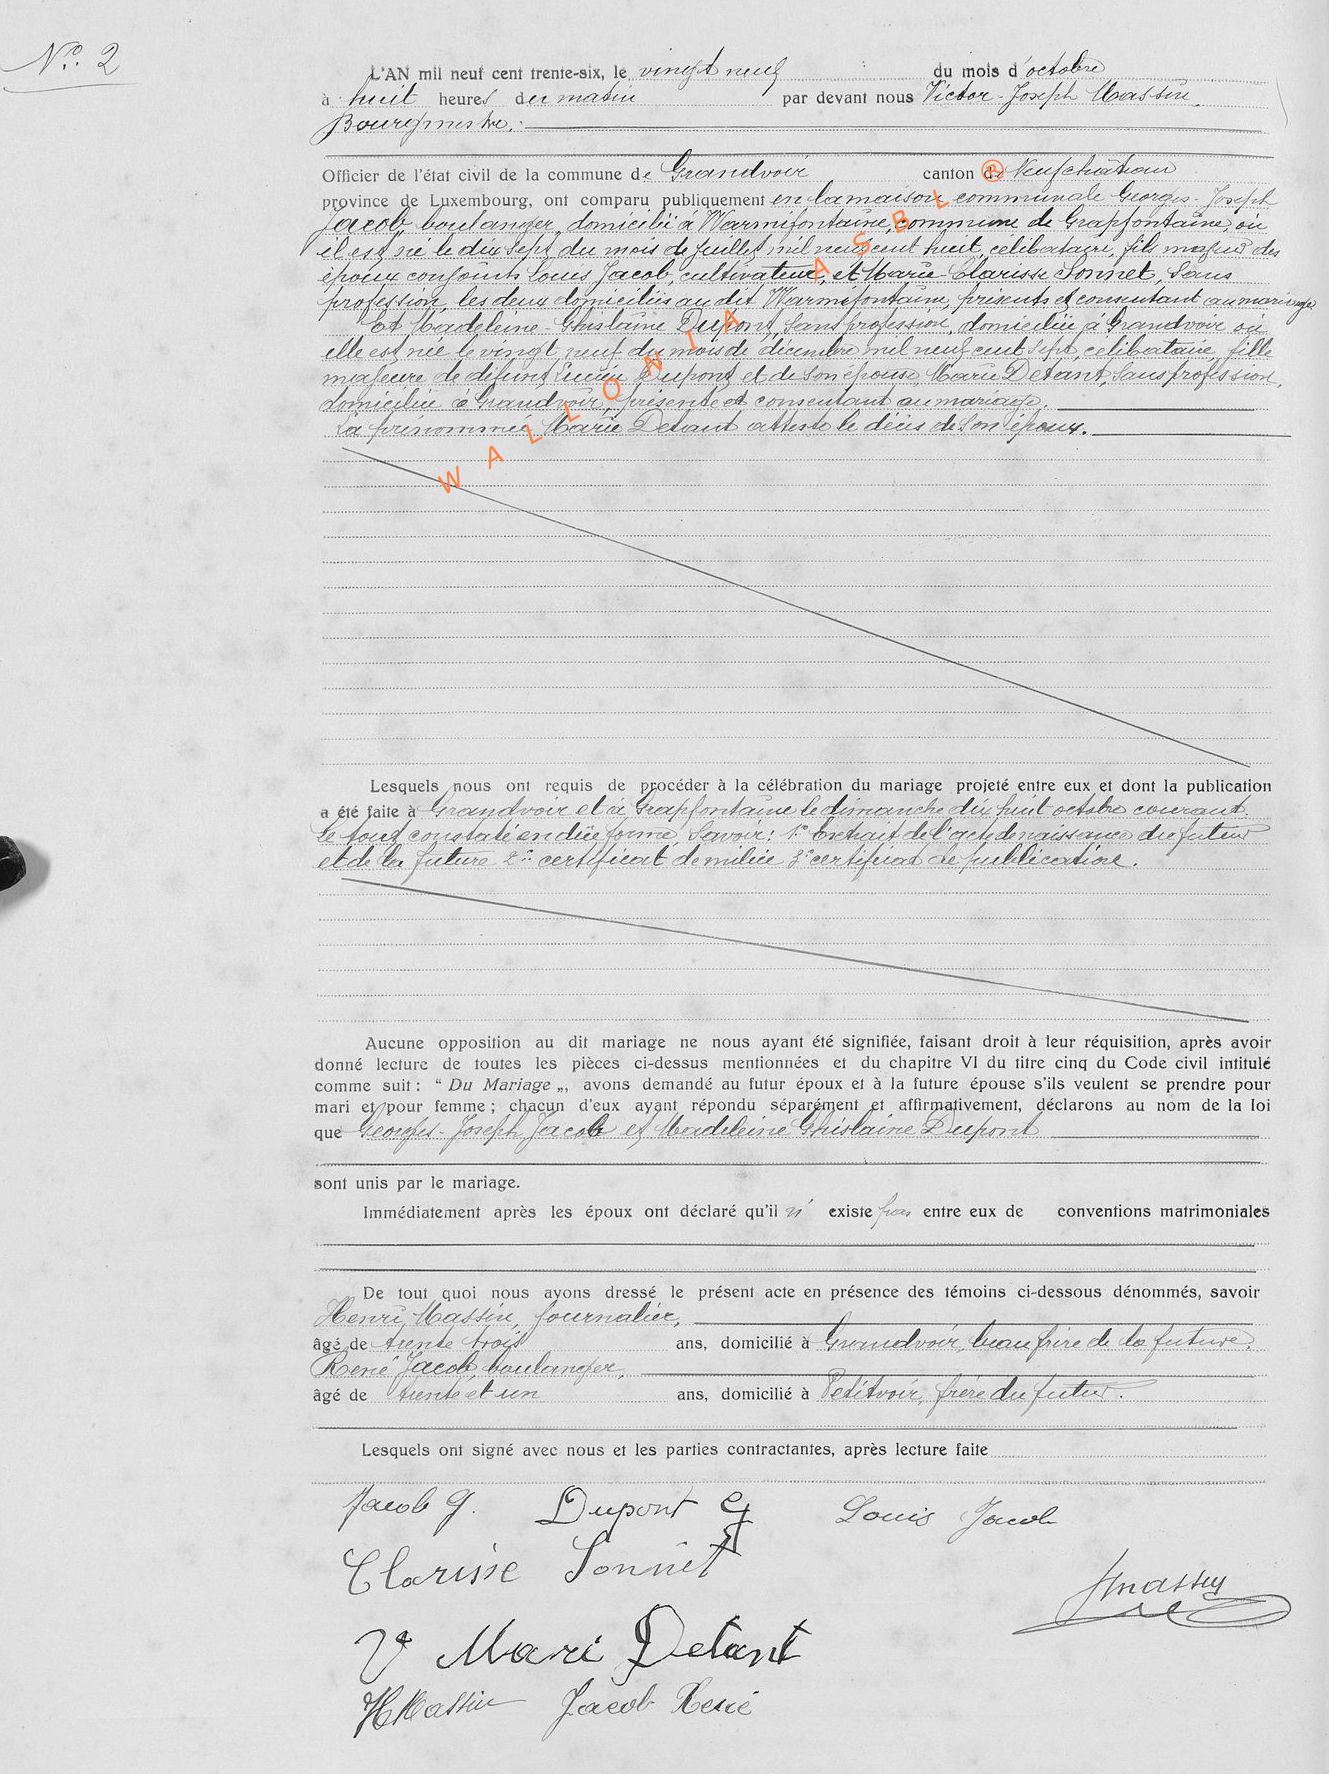 N° 2
L'AN mil neuf cent trente-six, le vingt neuf du mois d'octobre
à huit heures du matin par devant nous Victor-Joseph Massin
Bourgmestre.
Officier de l'état civil de la commune de Grandvoir canton de Neufchâteau
province de Luxembourg, ont comparu publiquement en la maison communale Georges-Joseph
Jacob boulanger, domicilié à Warmifontaine, commune de Grapfontaine, où
il est né le dix sept du mois de juillet mil neuf cent huit, célibataire, fils majeur des
époux conjoints Louis Jacob, cultivateur, et Marie Clarisse Sonnet, sans
profession, les deux domiciliés au dit Warmifontaine, présents et consentant au mariage
Et Madeleine-Ghislaine Dupont, sans profession, domiciliée à Grandvoir où
elle est née le vingt neuf du mois de décembre mil neuf cent sept, célibataire, fille
majeure de défunt Lucien Dupont et de son épouse Marie Detant, sans profession,
domiciliée à Grandvoir, présente et consentant au mariage.
La prénommée Marie Detant atteste le décès de son époux.
WALLONIA ASBL ®
Lesquels nous ont requis de procéder à la célébration du mariage projeté entre eux et dont la publication
a été faite à Grandvoir et à Grapfontaine le dimanche dix huit octobre courant.
Le tout constaté en due forme, savoir: 1° Extrait de l'acte de naissance du futur
et de la future 2° certificat de milice 3° certificat de publication.
Aucune opposition au dit mariage ne nous ayant été signifiée, faisant droit à leur réquisition, après avoir
donné lecture de toutes les pièces ci-dessus mentionnées et du chapitre VI du titre cinq du Code civil intitulé
comme suit : “ Du Mariage „, avons demandé au futur époux et à la future épouse s'ils veulent se prendre pour
mari et pour femme ; chacun d'eux ayant répondu séparément et affirmativement, déclarons au nom de la loi
que Georges-Joseph Jacob et Madeleine Ghislaine Dupont
sont unis par le mariage.
Immédiatement après les époux ont déclaré qu'il n' existe pas entre eux de conventions matrimoniales
De tout quoi nous avons dressé le présent acte en présence des témoins ci-dessous dénommés, savoir
Henri Massin, journalier,
âgé de trente trois ans, domicilié à Grandvoir, beau frère de la future.
René Jacob, boulanger,
âgé de trente et un ans, domicilié à Petitvoir, frère du futur.
Lesquels ont signé avec nous et les parties contractantes, après lecture faite
Jacob G. Dupont Louis Jacob
Clarisse Sonnet
Ve Mari Detant
H Massin Jacob René